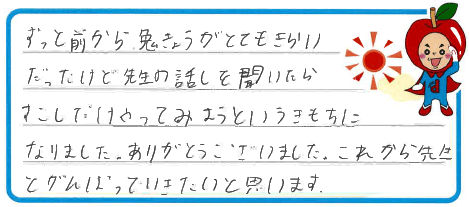 ずっと前から、勉きょうがとてもきらい
だったけど先生の話しを聞いたら
すこしだけやってみようというきもちに
なりました。ありがとうございました。これから先生
とがんばっていきたいと思います。